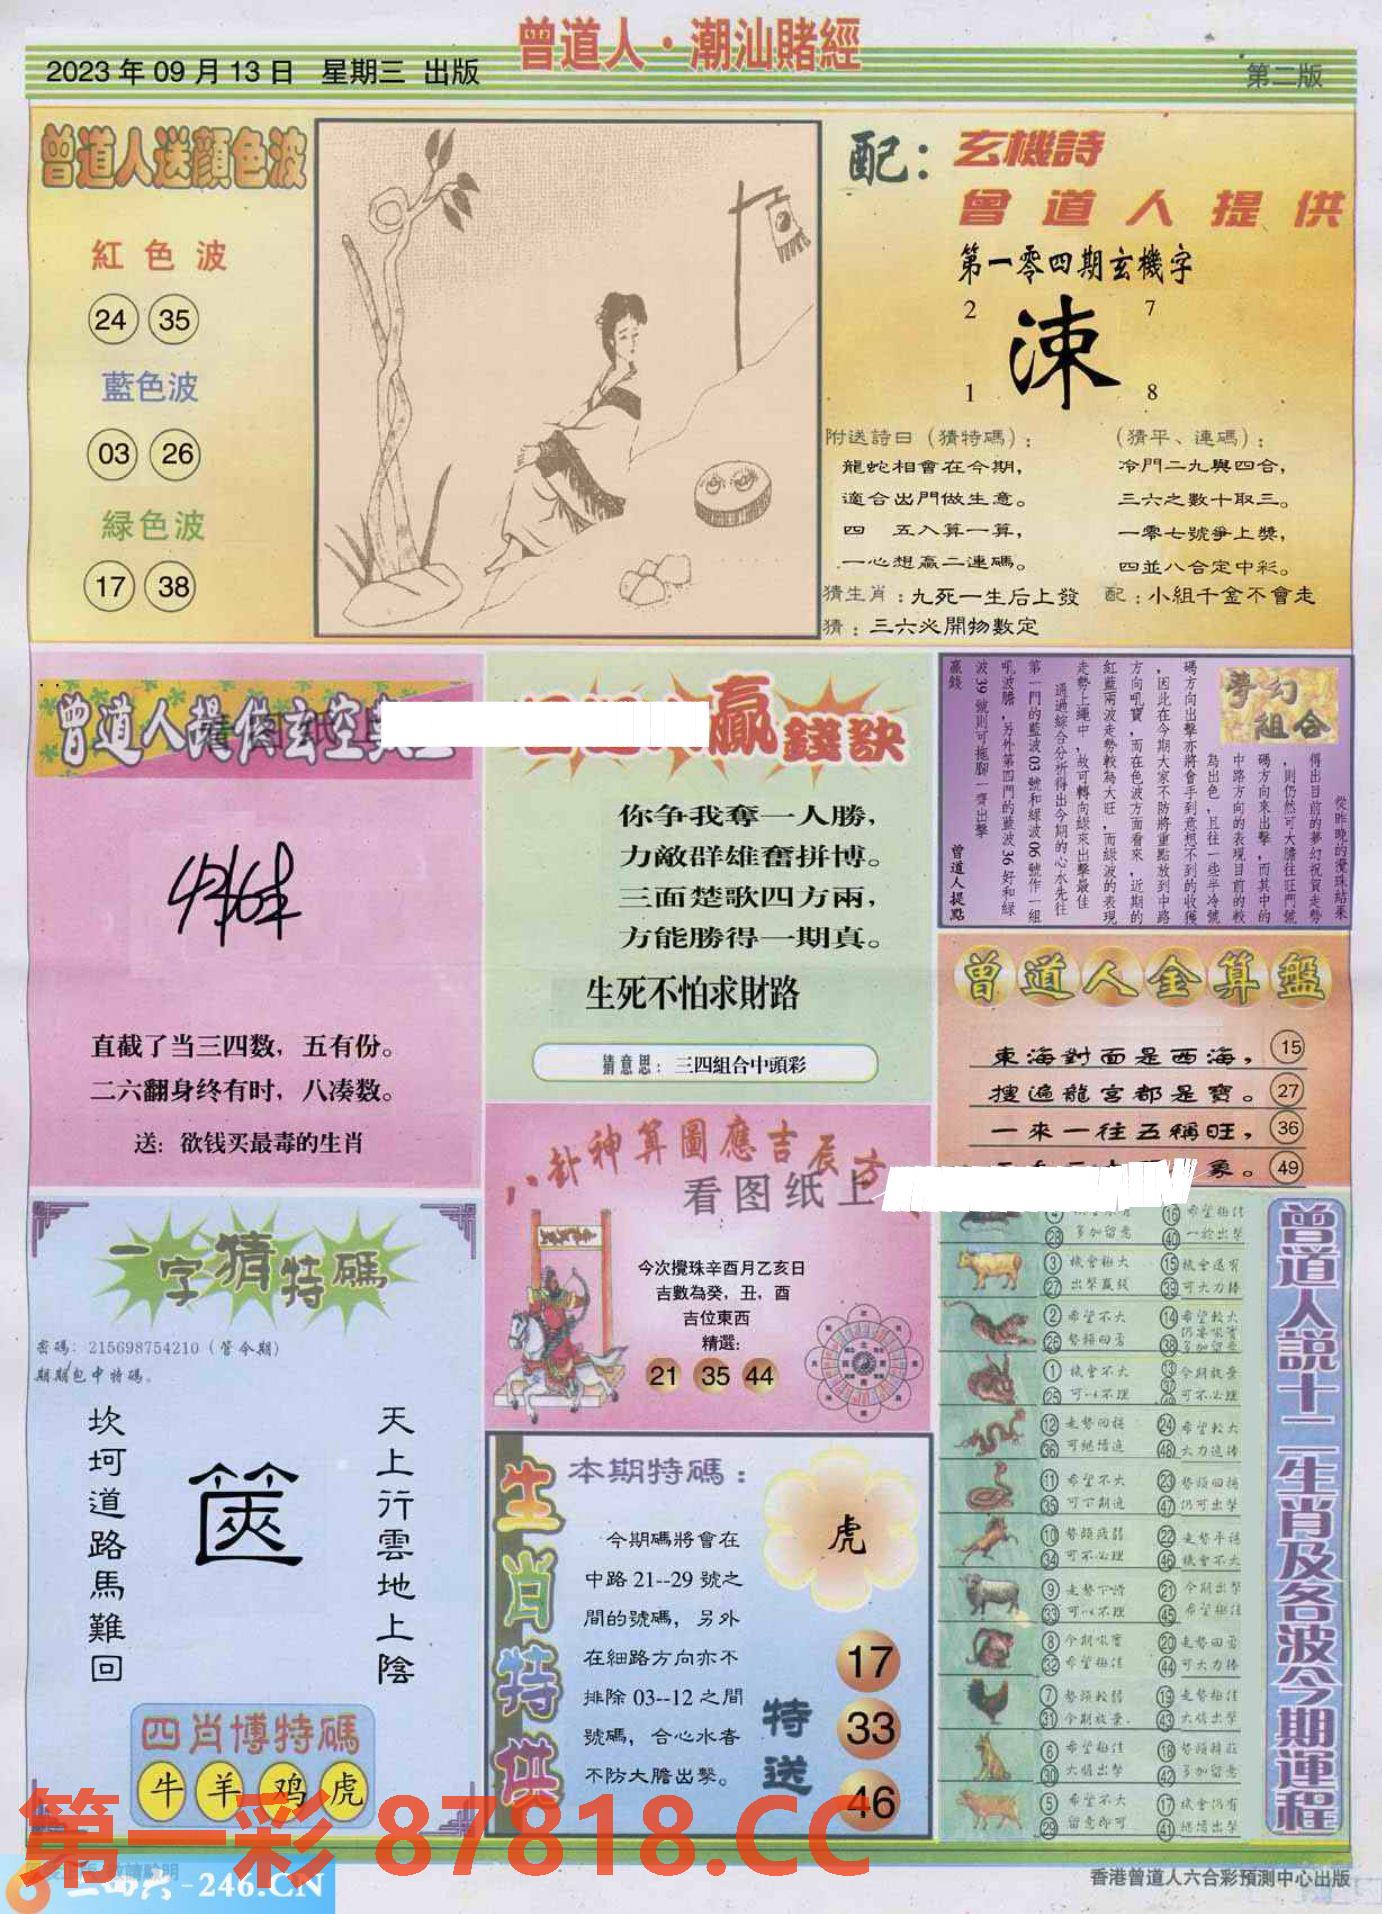 曾道人·潮汕賭經
2023年09月13日 星期三 出版
第二版
曾道人送顔色波
紅色波
24 35
藍色波
03 26
緑色波
17 38
配：
玄機詩
曾道人提供
第一零四期玄機字
2 7
涑
1 8
附送詩曰（猜特碼）：
龍蛇相會在今期，
適合出門做生意。
四 五入算一算，
一心想贏二連碼。
（猜平、連碼）：
冷門二九與四合，
三六之數十取三。
一零七號爭上獎，
四並八合定中彩。
猜生肖：九死一生后上發 配：小組千金不會走
猜：三六必開物數定
曾道人提供玄空
直截了当三四数，五有份。
二六翻身终有时，八凑数。
送：欲钱买最毒的生肖
贏錢訣
你争我奪一人勝，
力敵群雄奮拼博。
三面楚歌四方兩，
方能勝得一期真。
生死不怕求財路
猜意思：三四組合中頭彩
夢幻組合
從昨晚的攪珠結果
得出目前的夢幻祝賀走勢
，則仍然可大膽往旺門號
碼方向來出擊，而其中的
中路方向的表現目前的較
為出色，且往一些半冷號
碼方向出擊亦將會手到意想不到的收獲
，因此在今期大家不防將重點放到中路
方向吼寶，而在色波方面看來，近期的
紅藍兩波走勢較為大旺，而緑波的表現
走勢上繩中，故可轉向緑來出擊最佳
通過綜合分析得出今期的心水先往
第一門的藍波03號和緑波06號作一組
吼波膽，另外第四門的藍波36好和緑
波39號則可拖腳一齊出擊
贏錢 曾道人提點
曾道人金算盤
東海對面是西海， 15
搜遍龍宮都是寶。 27
一來一往五稱旺， 36
象。 49
八卦神算圖應吉辰方
看图纸上
今次攪珠辛酉月乙亥日
吉數為癸，丑，酉
吉位東西
精選：
21 35 44
一字猜特碼
密碼：215698754210（管今期）
期期包中特碼。
天上行雲地上陰
篋
坎坷道路馬難回
四肖博特碼
牛 羊 鸡 虎
生肖特供
本期特碼：
今期碼將會在
中路21--29號之
間的號碼，另外
在細路方向亦不
排除03--12之間
號碼，合心水者
不防大膽出擊。
虎
特送
17
33
46
曾道人説十二生肖及各波今期運程
4 16 希望極佳
28 多加留意 40 一於出擊
3 機會極大 15 機會還有
27 出擊贏錢 39 可大力捧
2 希望不大 14 希望較大
26 勢頭回勇 38
1 機會不大 13 今期放棄
25 可以不理 可不必理
12 走勢回穩 24 希望較大
36 可繼續追 48 大力追捧
11 希望不大 23 勢頭回穩
35 可下期追 47 仍可出擊
10 勢頭疲弱 22 走勢平穩
34 可不必理 46 機會不大
9 走勢下滑 21 今期出擊
33 可以不理 45 希望極佳
8 今期吼寶 20 走勢回勇
32 希望極佳 44 可大力捧
7 勢頭較弱 19 走勢極佳
31 今期放棄 43 大膽出擊
6 希望極佳 18
30 大膽出擊 42 多加留意
5 希望不大 17 機會仍有
29 留意即可 41 繼續出擊
第一彩 87818.CC
二四六-246.CN
香港曾道人六合彩預測中心出版